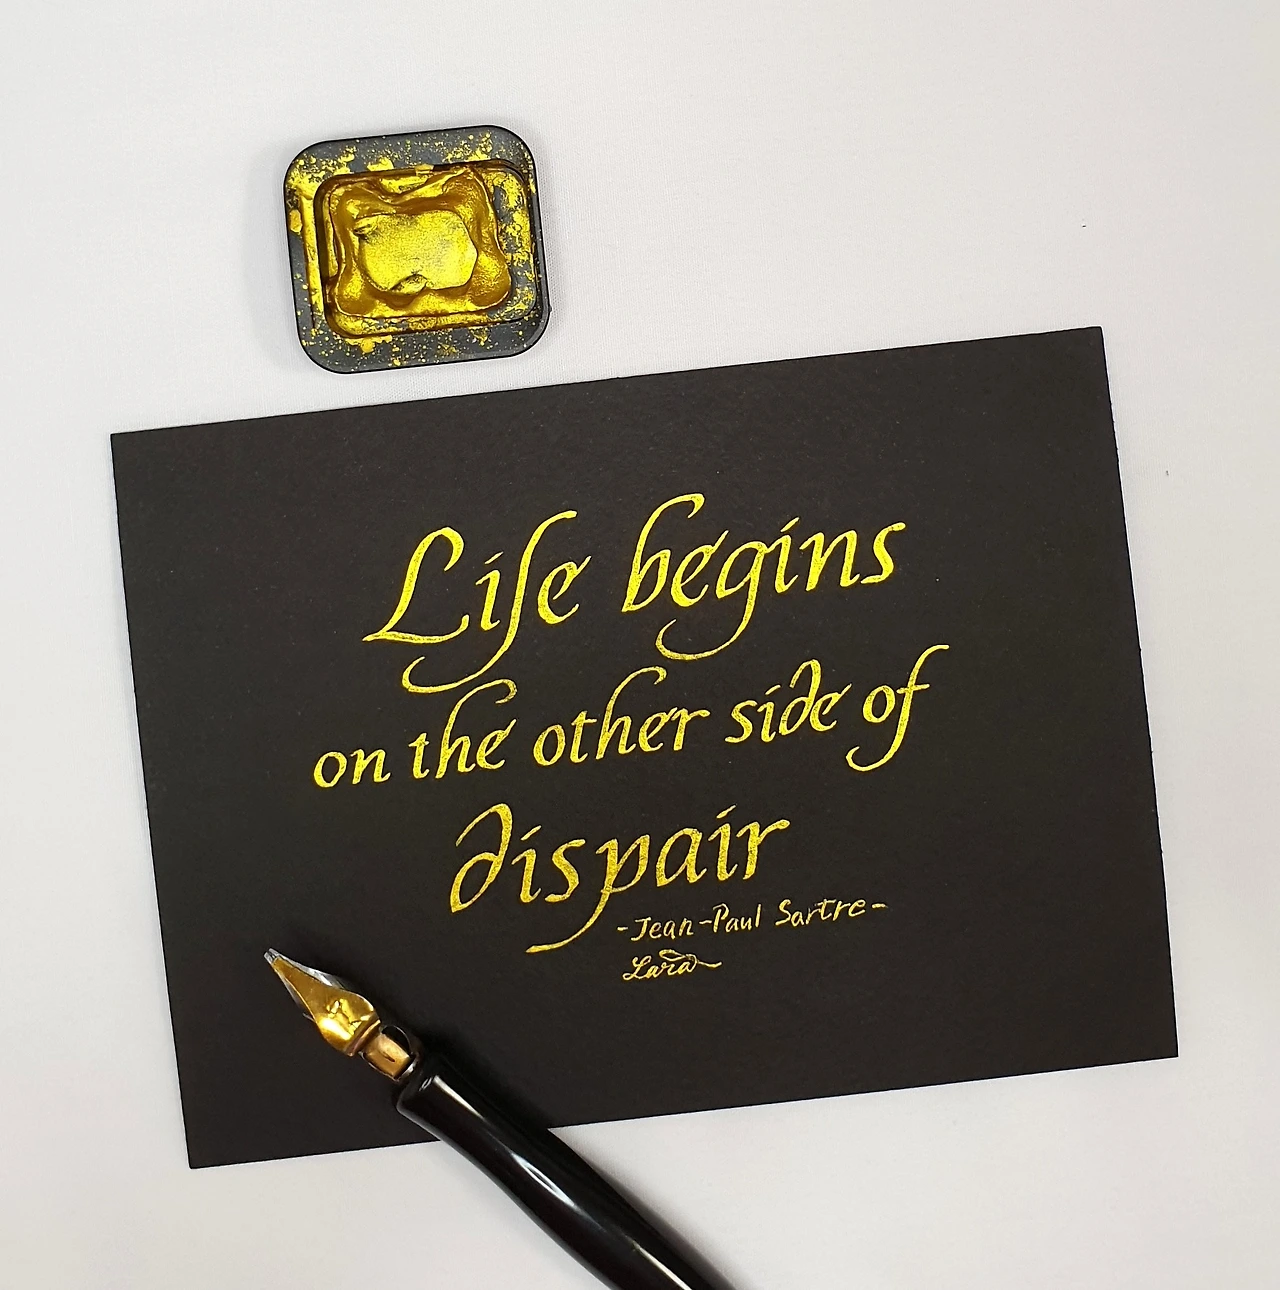 Life begins
on the other side of
dispair
-Jean-Paul Sartre-
Lara